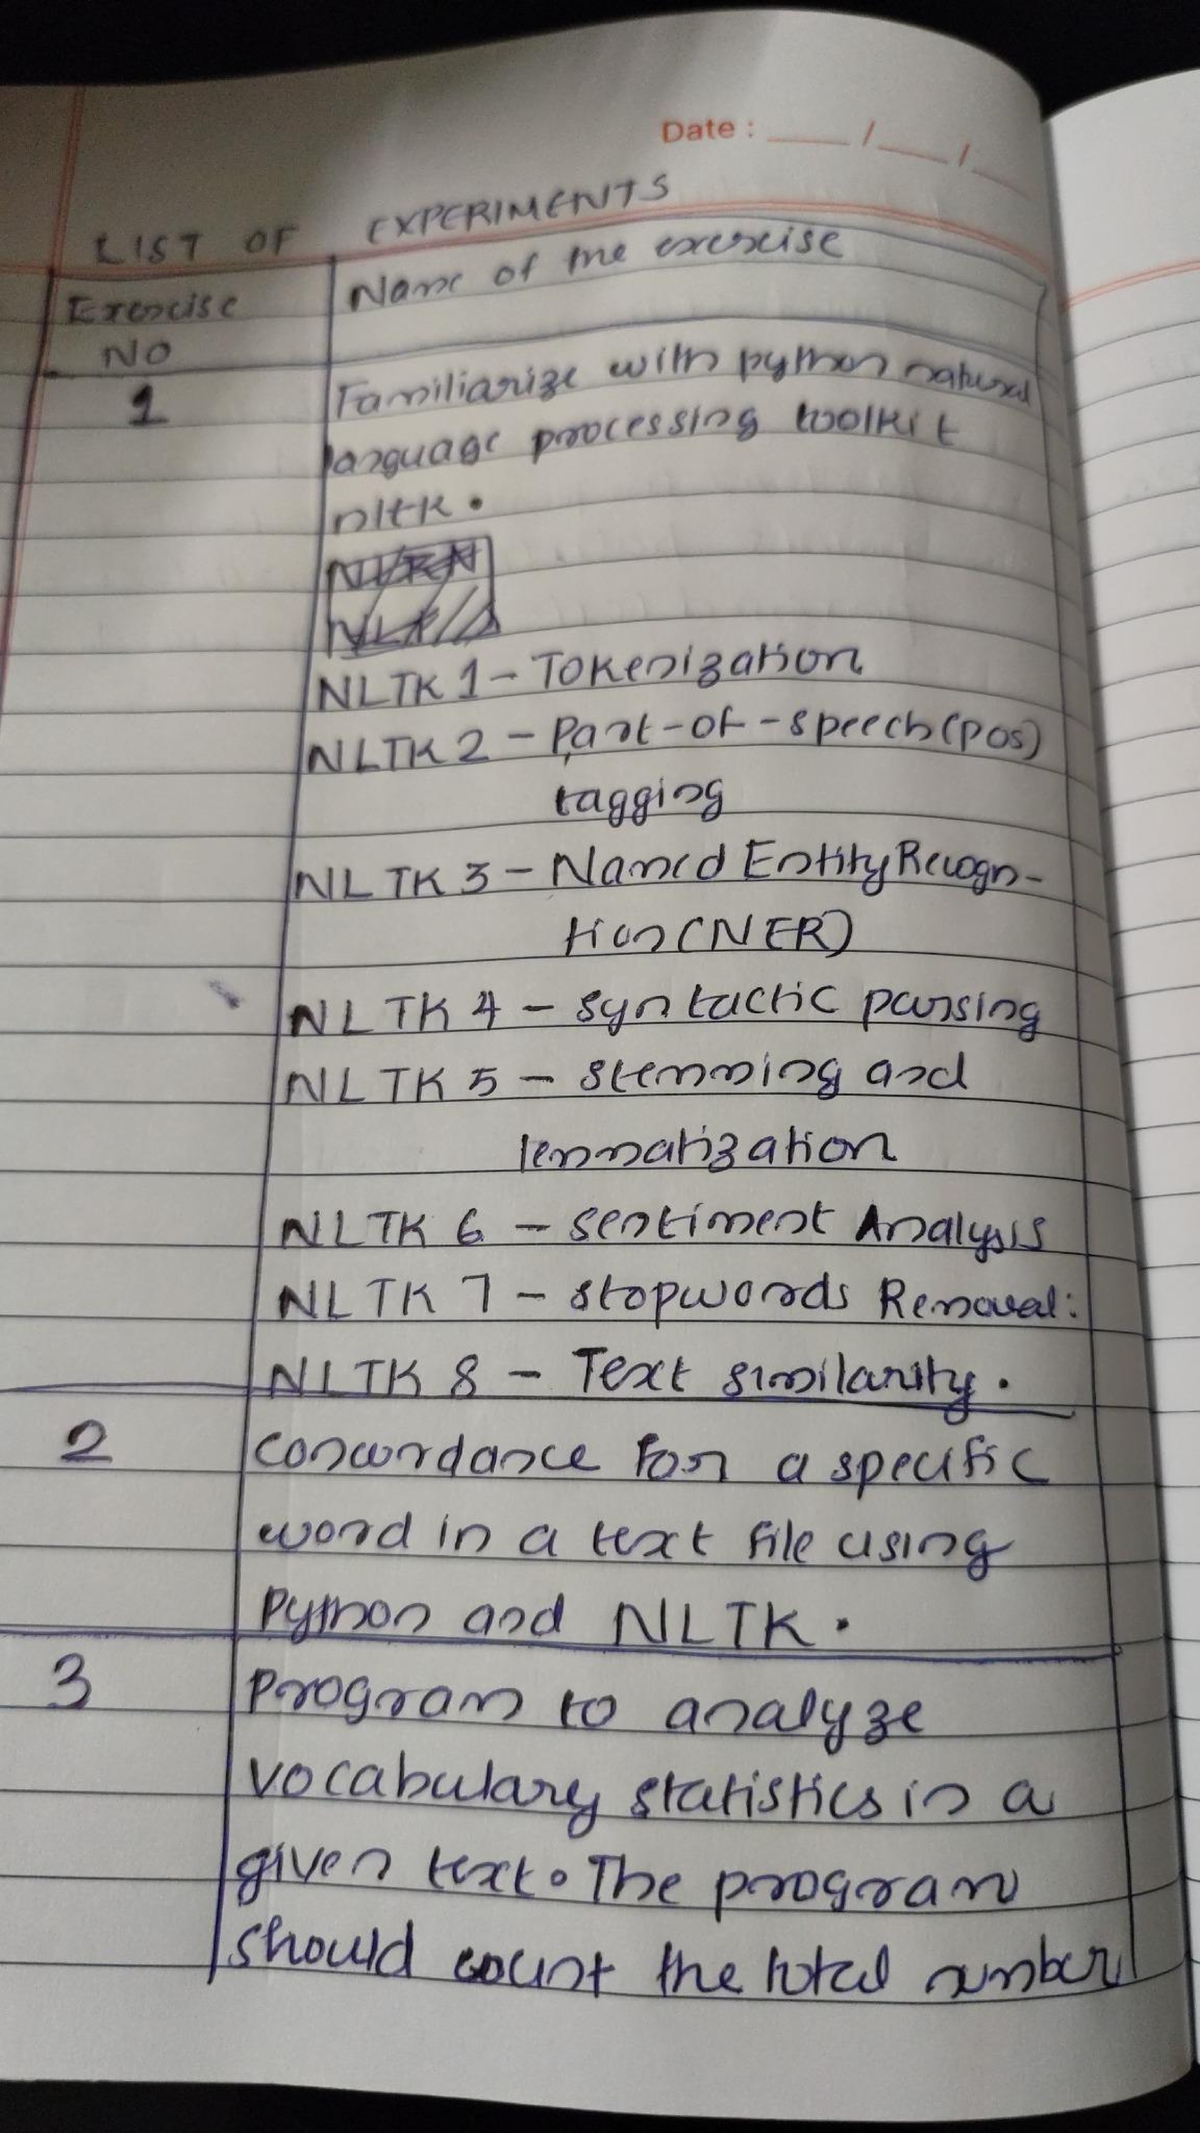 Date : ___ / ___ / __
LIST OF EXPERIMENTS
Exercise
NO
Name of the exercise
1
Familiarize with python natural
language processing toolkit
nltk.
NLTK 1 - Tokenization
NLTK 2 - Part-of-speech (pos)
tagging
NLTK 3 - Named Entity Recogn-
tion (NER)
NLTK 4 - syntactic parsing
NLTK 5 - stemming and
lemmatization
NLTK 6 - sentiment Analysis
NLTK 7 - stopwords Removal:
NLTK 8 - Text similarity.
2
concordance for a specific
word in a text file using
Python and NLTK.
3
program to analyze
vocabulary statistics in a
given text. The program
should count the total number